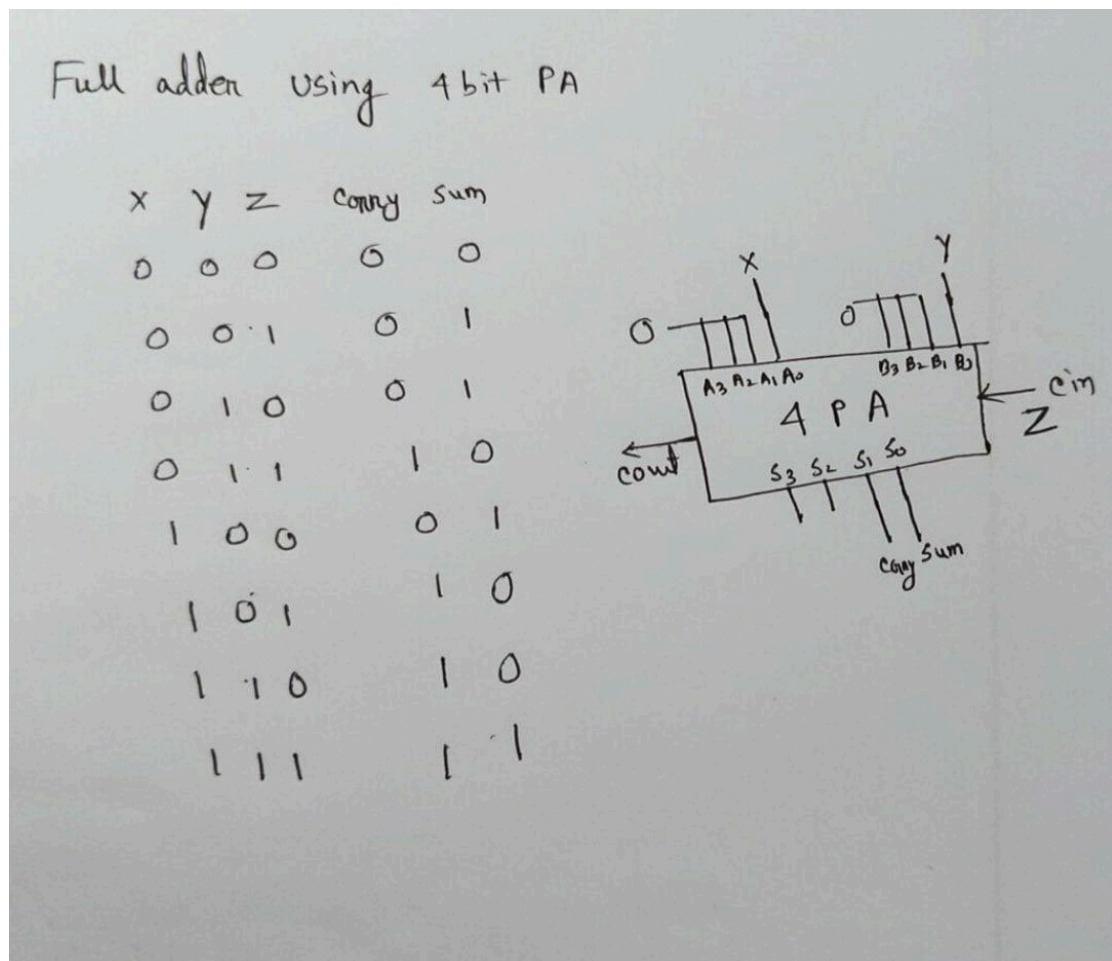 Full adder using 4 bit PA
X Y Z Carry Sum
0 0 0 0 0
0 0 1 0 1
0 1 0 0 1
0 1 1 1 0
1 0 0 0 1
1 0 1 1 0
1 1 0 1 0
1 1 1 1 1
X Y
0 0
A3 A2 A1 A0 B3 B2 B1 B0
4 P A
Cin
Z
Cout
S3 S2 S1 S0
Carry Sum